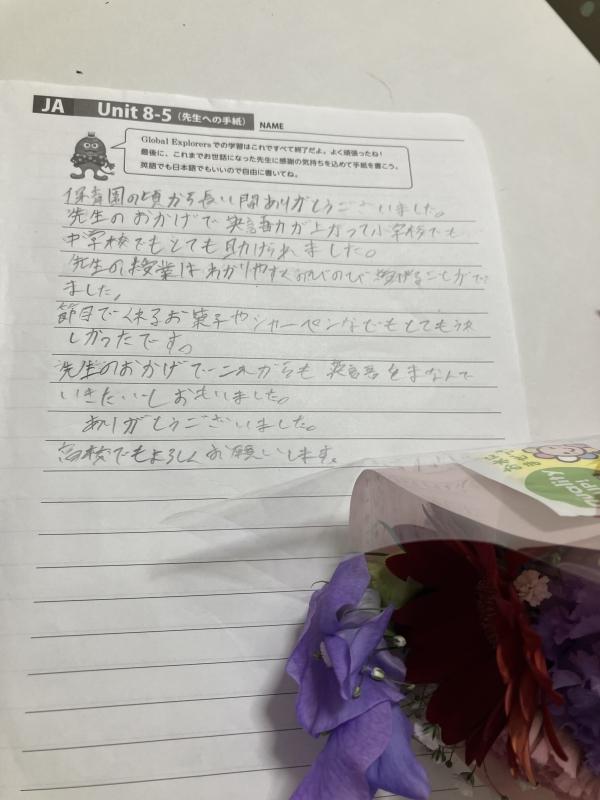 JA Unit 8-5 (先生への手紙) NAME
Global Explorersでの学習はこれですべて終了だよ。よく頑張ったね!
最後に、これまでお世話になった先生に感謝の気持ちを込めて手紙を書こう。
英語でも日本語でもいいので自由に書いてね。
保育園の頃から長い間ありがとうございました。
先生のおかげで英語力が上がって小学校でも
中学校でもとても助けられました。
先生の授業はわかりやすくのびのび ことがで
ました。
節目でくれるお菓子やシャーペンなどもとてもうれ
しかったです。
先生のおかげでこれからも英語をまなんで
いきたいとおもいました。
ありがとうございました。
高校でもよろしくお願いします。
uality
up!